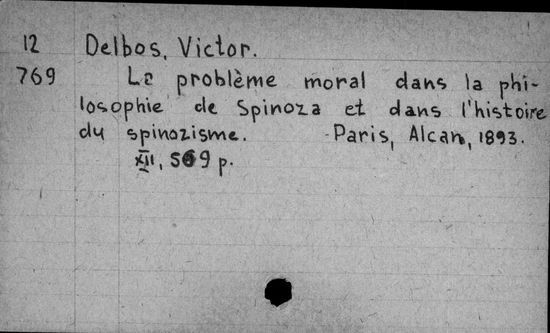 12 Delbos, Victor.
769 Le problème moral dans la phi-
losophie de Spinoza et dans l'histoire
du spinozisme. - Paris, Alcan, 1893.
XII, 569 p.